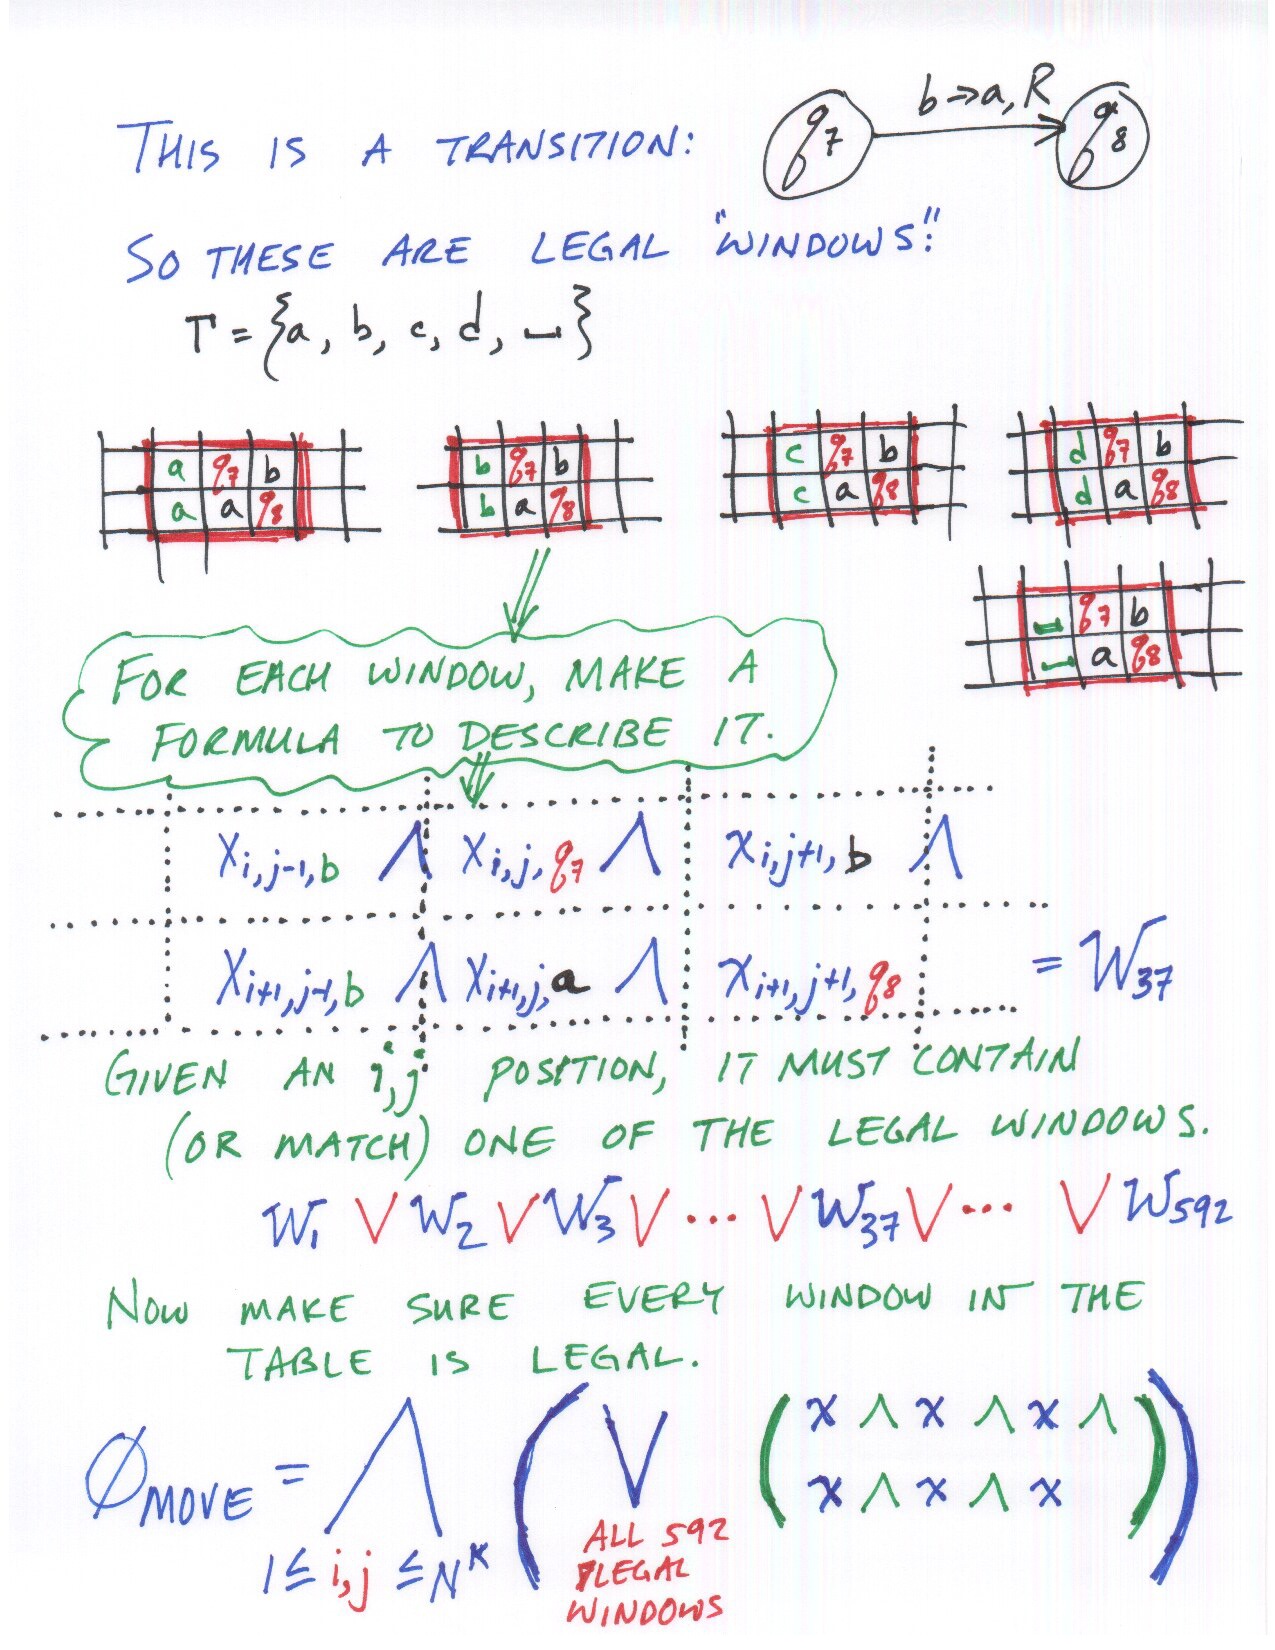 THIS IS A TRANSITION: q7 b→a, R q8
SO THESE ARE LEGAL "WINDOWS":
Γ = {a, b, c, d, ⎵}
a q7 b
a a q8
b q7 b
b a q8
c q7 b
c a q8
d q7 b
d a q8
⎵ q7 b
⎵ a q8
FOR EACH WINDOW, MAKE A
FORMULA TO DESCRIBE IT.
X i,j-1,b ∧ X i,j,q7 ∧ X i,j+1,b ∧
X i+1,j-1,b ∧ X i+1,j,a ∧ X i+1,j+1,q8 = W37
GIVEN AN i,j POSITION, IT MUST CONTAIN
(OR MATCH) ONE OF THE LEGAL WINDOWS.
W1 ∨ W2 ∨ W3 ∨ ... ∨ W37 ∨ ... ∨ W592
NOW MAKE SURE EVERY WINDOW IN THE
TABLE IS LEGAL.
Ø MOVE = ∧ ( ∨ ( X ∧ X ∧ X ∧
X ∧ X ∧ X ) )
1 ≤ i,j ≤ N^K
ALL 592
LEGAL
WINDOWS